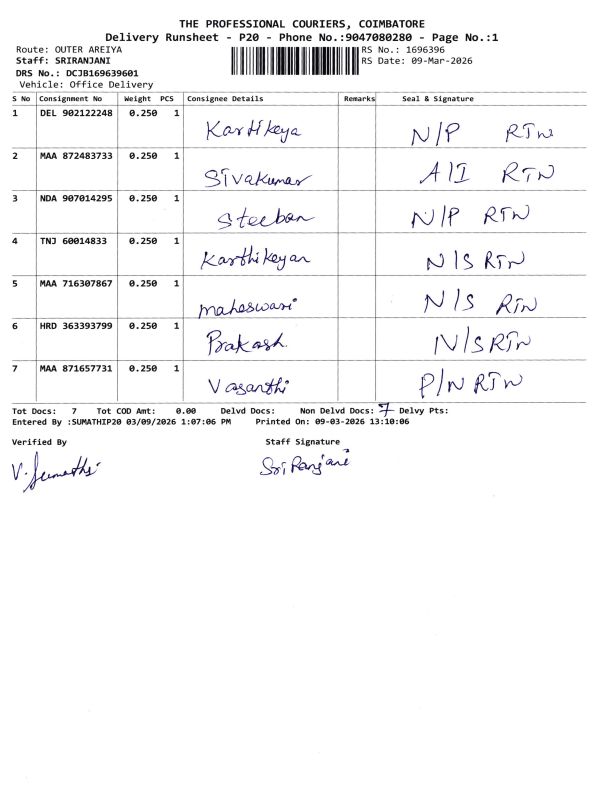 THE PROFESSIONAL COURIERS, COIMBATORE
Delivery Runsheet - P20 - Phone No.:9047080280 - Page No.:1
Route: OUTER AREIYA
RS No.: 1696396
Staff: SRIRANJANI
RS Date: 09-Mar-2026
DRS No.: DCJB169639601
Vehicle: Office Delivery
S No Consignment No Weight PCS Consignee Details Remarks Seal & Signature
1 DEL 902122248 0.250 1 Kartikeya N/P RTN
2 MAA 872483733 0.250 1 Sivakumar A/I RTN
3 NDA 907014295 0.250 1 Steeban N/P RTN
4 TNJ 60014833 0.250 1 Karthikeyan N/S RTN
5 MAA 716307867 0.250 1 maheswari N/S RTN
6 HRD 363393799 0.250 1 Prakash. N/S RTN
7 MAA 871657731 0.250 1 Vasanthi P/N RTN
Tot Docs: 7 Tot COD Amt: 0.00 Delvd Docs: Non Delvd Docs: 7 Delvy Pts:
Entered By :SUMATHIP20 03/09/2026 1:07:06 PM Printed On: 09-03-2026 13:10:06
Verified By Staff Signature
V. Sumathi Sri Ranjani